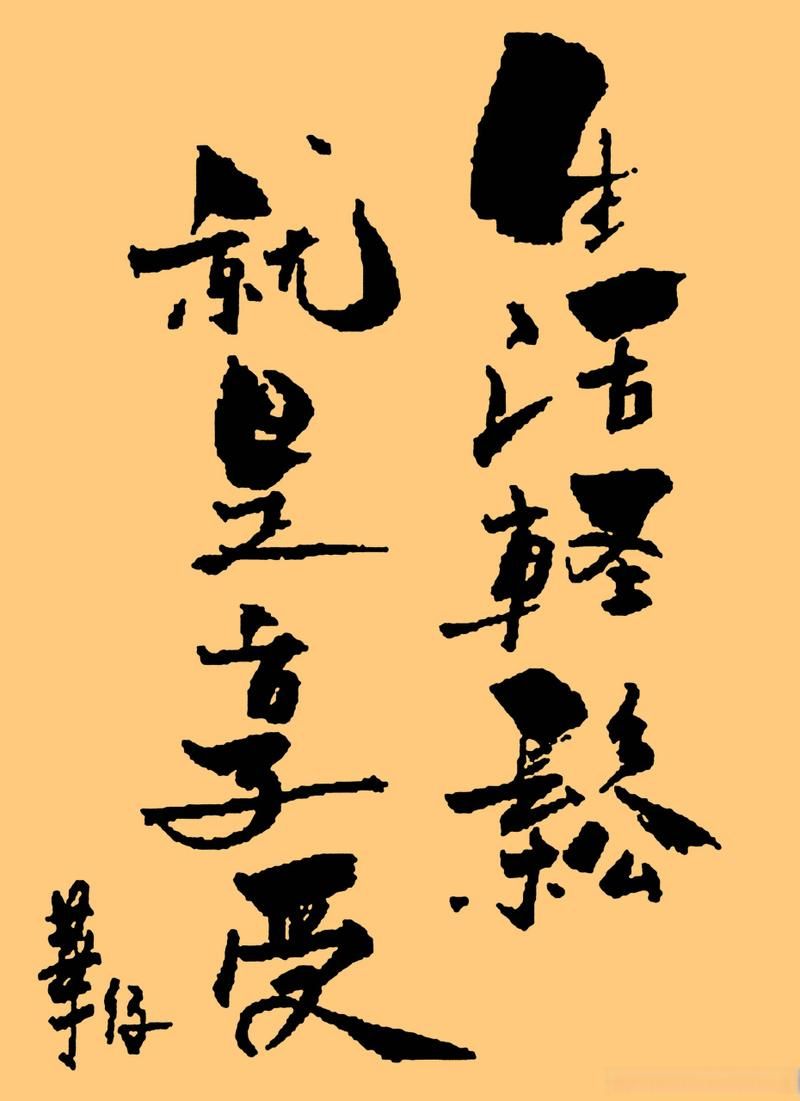 生活軽鬆
就是享受
華仔